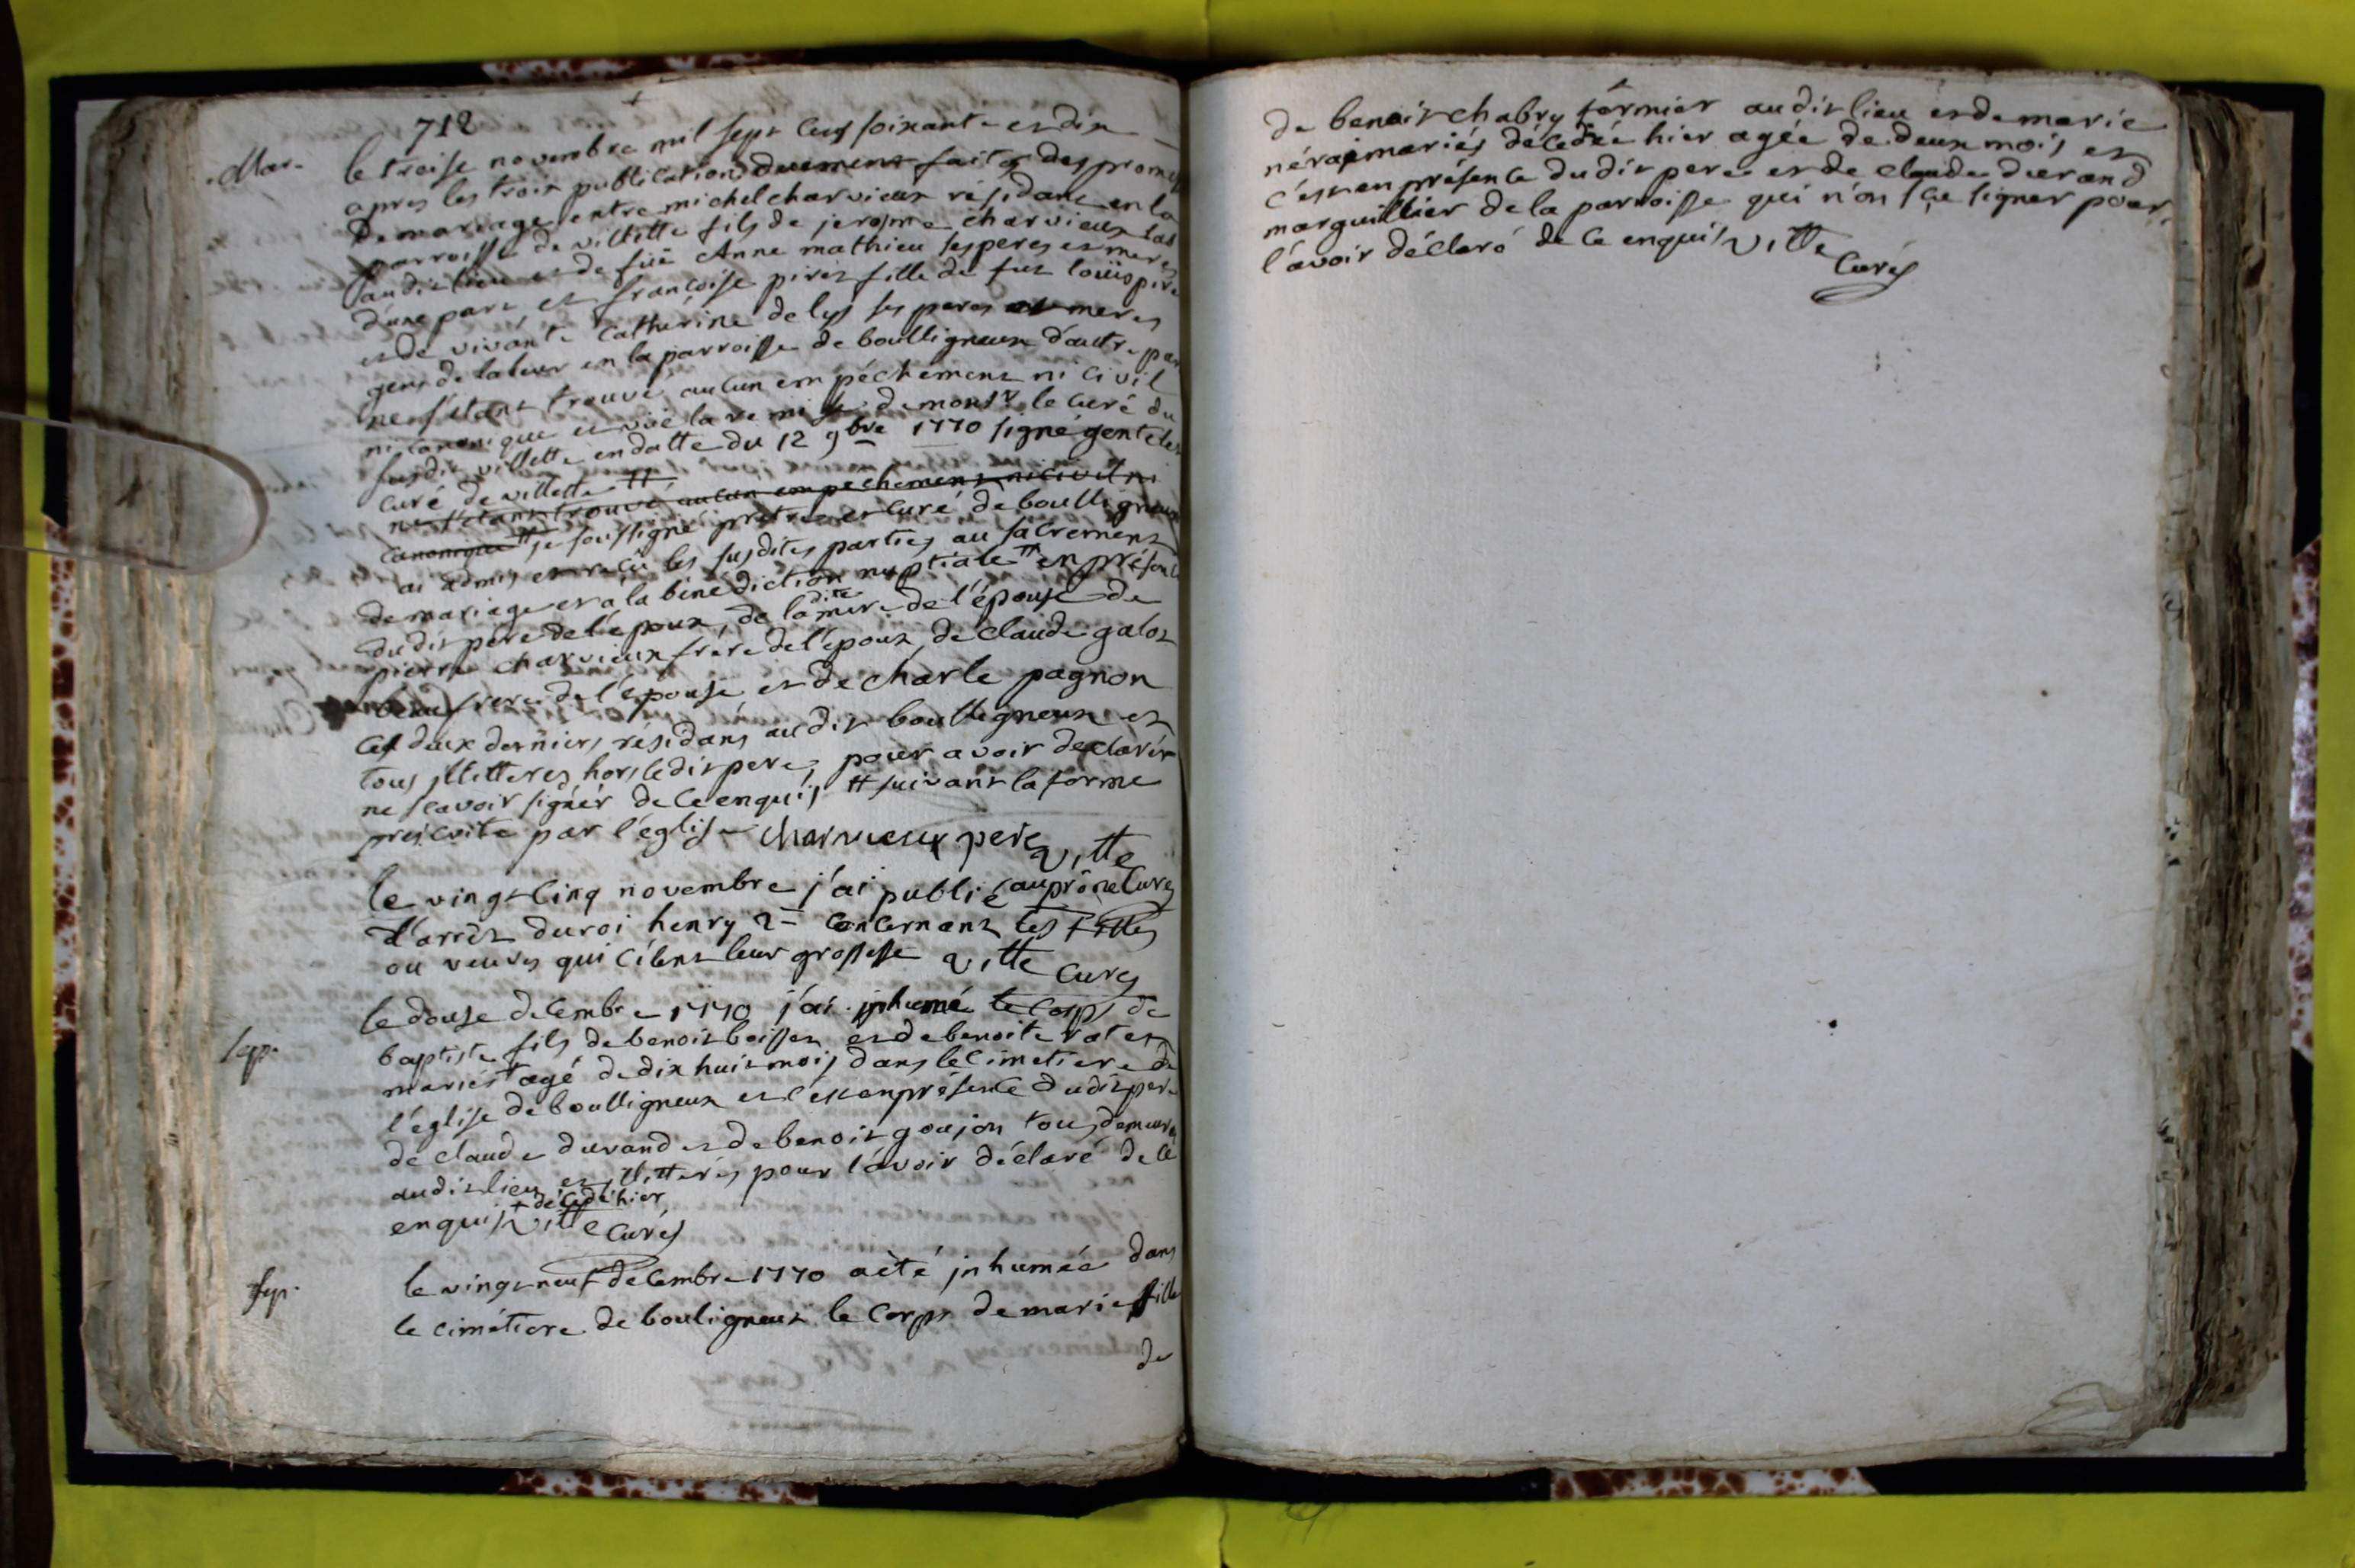 712
Mar. le treise novembre mil sept cens soixante et dix
apres les trois publications duement faites des promes
de mariage entre michel charvieux résidant en la
parroisse de villette fils de jerosme charvieux
audit lieu et de füe Anne mathieu ses peres et meres
d'une part, et françoise piret fille de fut loüis piret
et de vivante Catherine de lys ses peres et meres
gens de labeur en la parroisse de boulligneux d'autre part
ne s'étant trouvé aucun empéchement ni civil
ni canonique et vüe la remise de monsr le curé du
susdit villette en datte du 12 9bre 1770 signé
curé de villette #
ne s'étant trouvé aucun empechement ni civil ni
canonique # je soussigné pretre et curé de boulligneux
ai admis et reçû les susdites parties au sacrement
de mariage et a la bénédiction nuptiale # en présence
dudit pére de l'époux, de la dite mere de l'épouse de
pierre charvieux frére de l'époux, de claude galot
beaufrere de l'épouse et de charle pagnon
ces deux derniers résidans audit boulligneux et
tous illitteres hors ledit pere, pour avoir declarér
ne scavoir signér de ce enquis # suivant la forme
prescrite par l'église charvieux pere vitte
curé
le vingt cinq novembre j'ai publié au prône
l'arrêt du roi henry 2= concernant les filles
ou veuves qui célent leur grossesse vitte curé
le douse decembre 1770 j'ai inhumé le corps de
Sep. baptiste fils de benoit boisson et de benoite
mariés + agé de dix huit mois dans le cimetiere de
l'église de boulligneux et c'est en présence dudit pere
de claude durand et de benoit goujon tous demeurans
audit lieu et illitterés pour l'avoir déclaré de ce
enquis + décedé hier vitte curé
Sep. le vingt neuf decembre 1770 a été inhumée dans
le cimétiere de bouligneux le corps de marie fille
de
de benoit chabry fermier audit lieu et de marie
néraj mariés décedée hier agée de deux mois et
c'est en présence dudit pere et de claude durand
marguillier de la parroisse qui n'on sçu signer pour
l'avoir déclaré de ce enquis vitte
curé